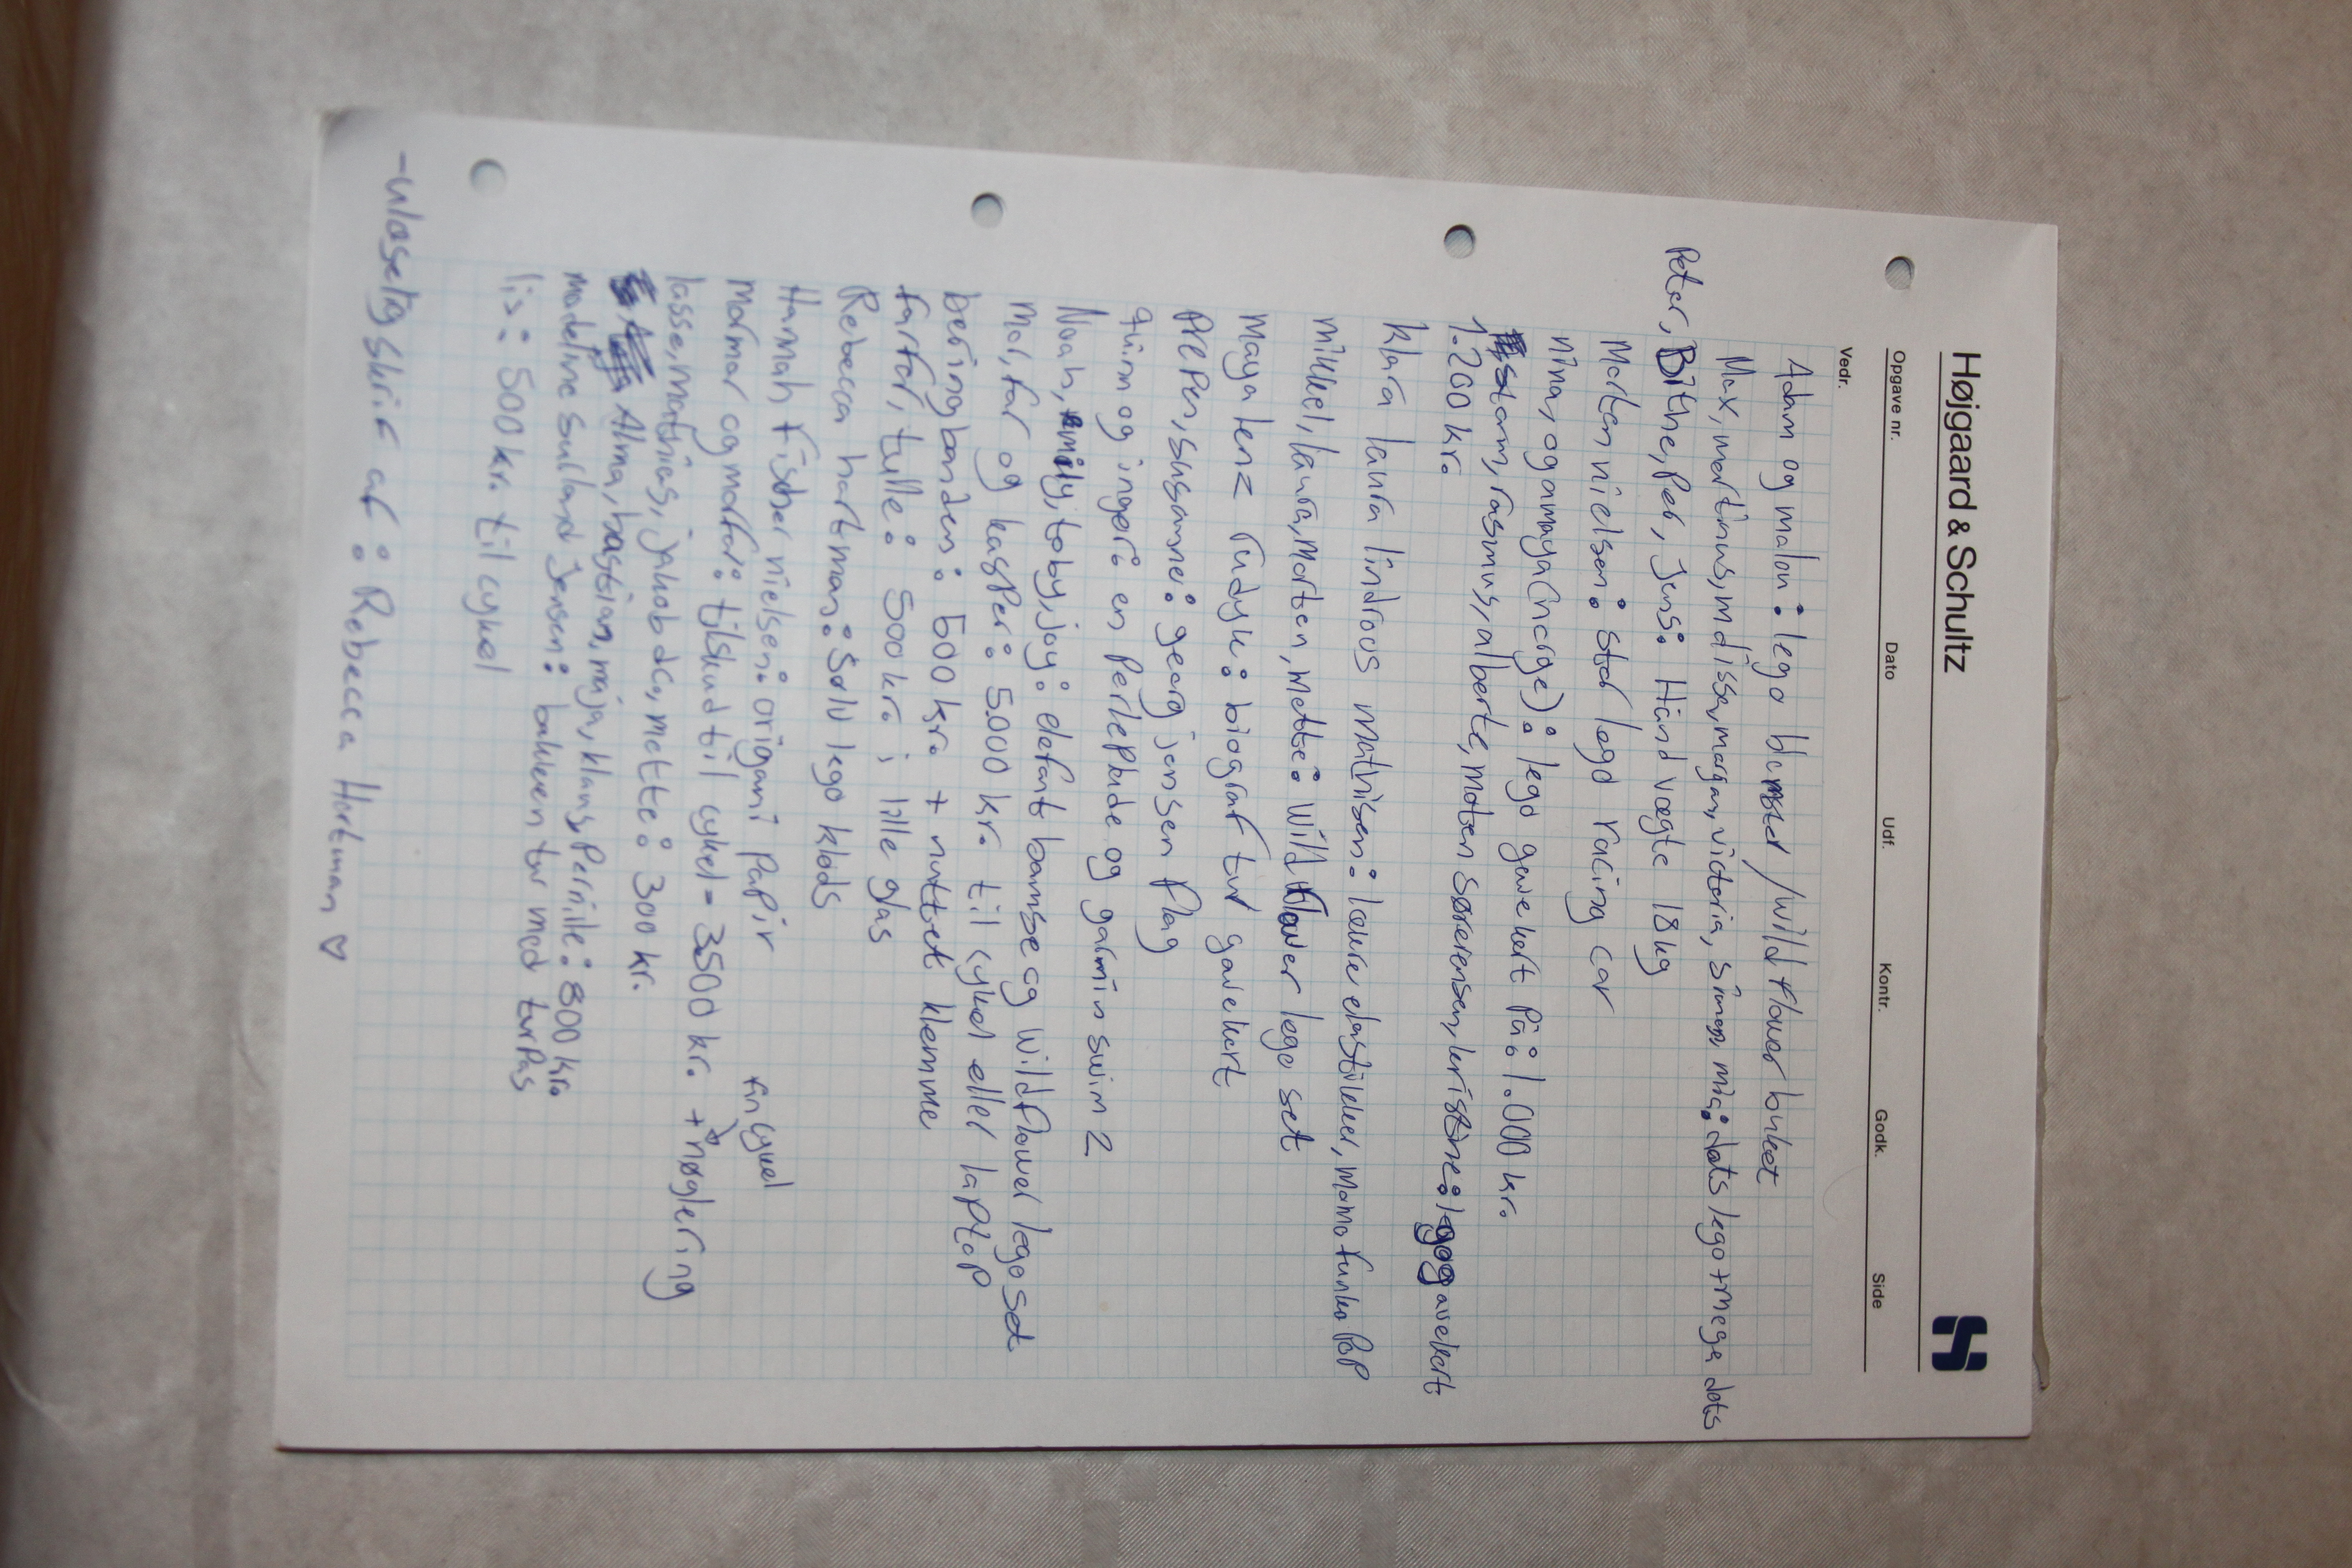 Højgaard & Schultz
Opgave nr. Dato Udf. Kontr. Godk. Side
Vedr.
Adam og malou: lego blomster / wild flower buket
Max, martinus, mdisse, morgan, victoria, simon, mia: dots lego + mega dots
Peter, Bithe, Per, Jens: Hånd vægte 18kg
Morten nielsen: stor lego racing car
nina, og amaya (norge): lego gavekort på: 1.000 kr.
storm, rasmus, alberte, moten sørensen, kristine: lego gavekort
1.200 kr.
klara laura lindroos mathisen: lækre elastikker, moma funko PoP
mikkel, laura, Morten, Mette: wild flower lego set
Maya lenz rudyk: biograf tur gavekort
Preben, susanne: georg jensen flag
quinn og inger: en Perleplade og garmin swim 2
Noah, emily, toby, joy: elefant bamse og wildflower lego set
Mor, far og kasper: 5.000 kr. til cykel eller laptop
beringbanden: 500 kr. + nuttet klemme
farfar, tulle: 500 kr. i lille glas
Rebecca hartman: Sølv lego klods
Hannah fischer nielsen: origami papir
fin cykel
mormor og morfar: tilskud til cykel = 3500 kr. + nøglering
lasse, mathias, jakob dc, mette: 300 kr.
Alma, bastian, maja, klaus, Pernille: 800 kr.
modeline sulland Jensen: bakken tur med turPas
lis: 500 kr. til cykel
-ulæselig skrift af: Rebecca Hartman ♡